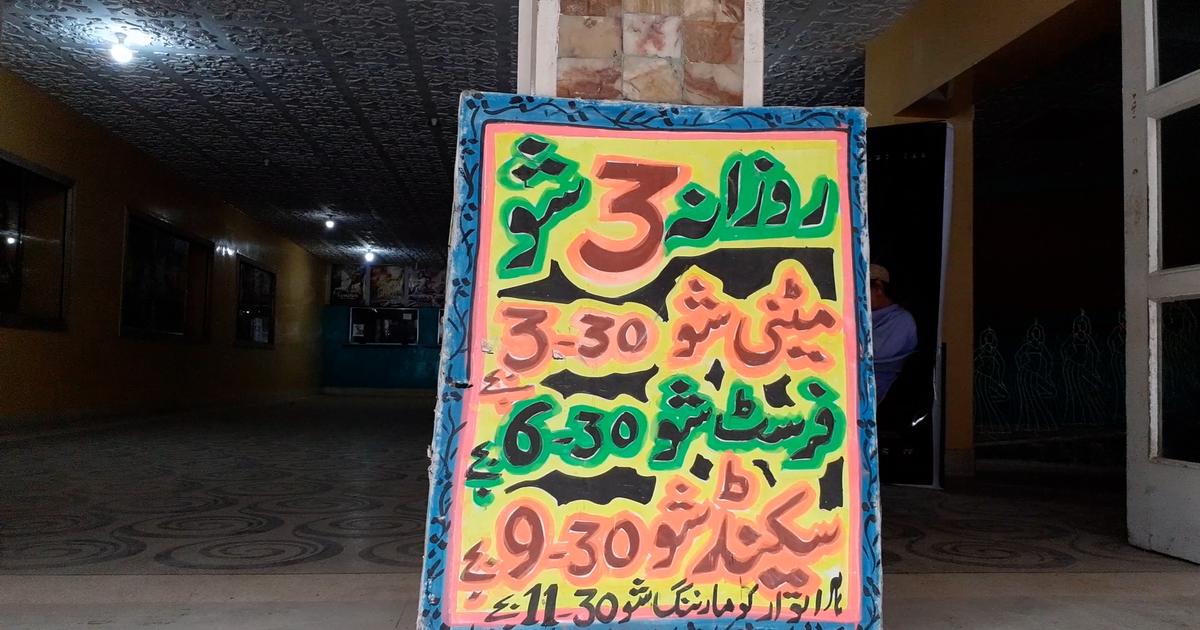 روزانہ 3 شو
میٹنی شو 3-30 بجے
فرسٹ شو 6-30 بجے
سیکنڈ شو 9-30 بجے
ہر اتوار کو مارننگ شو 11-30 بجے